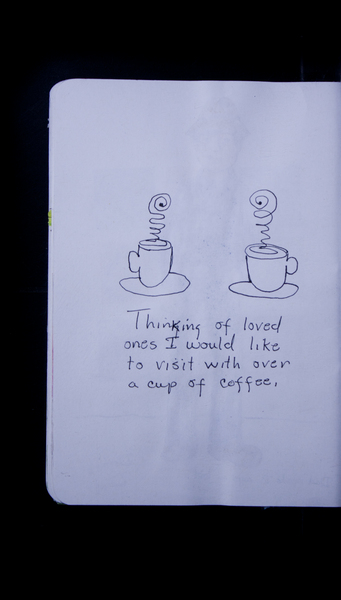 Thinking of loved
ones I would like
to visit with over
a cup of coffee.